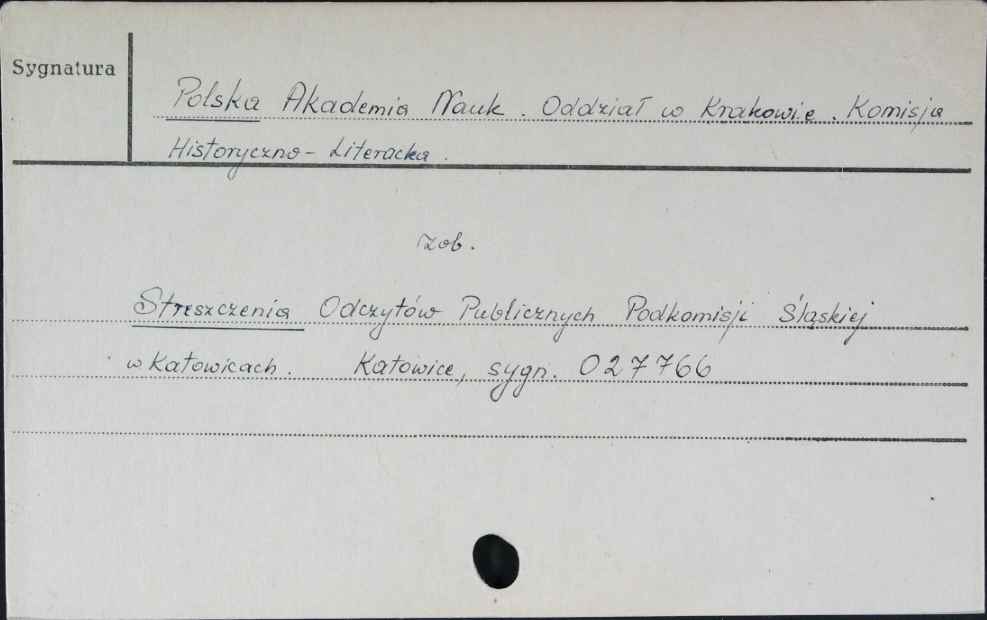 Sygnatura
Polska Akademia Nauk. Oddział w Krakowie. Komisja
Historyczno-Literacka.
zob.
Streszczenia Odczytów Publicznych Podkomisji Śląskiej
w Katowicach. Katowice, sygn. 027766